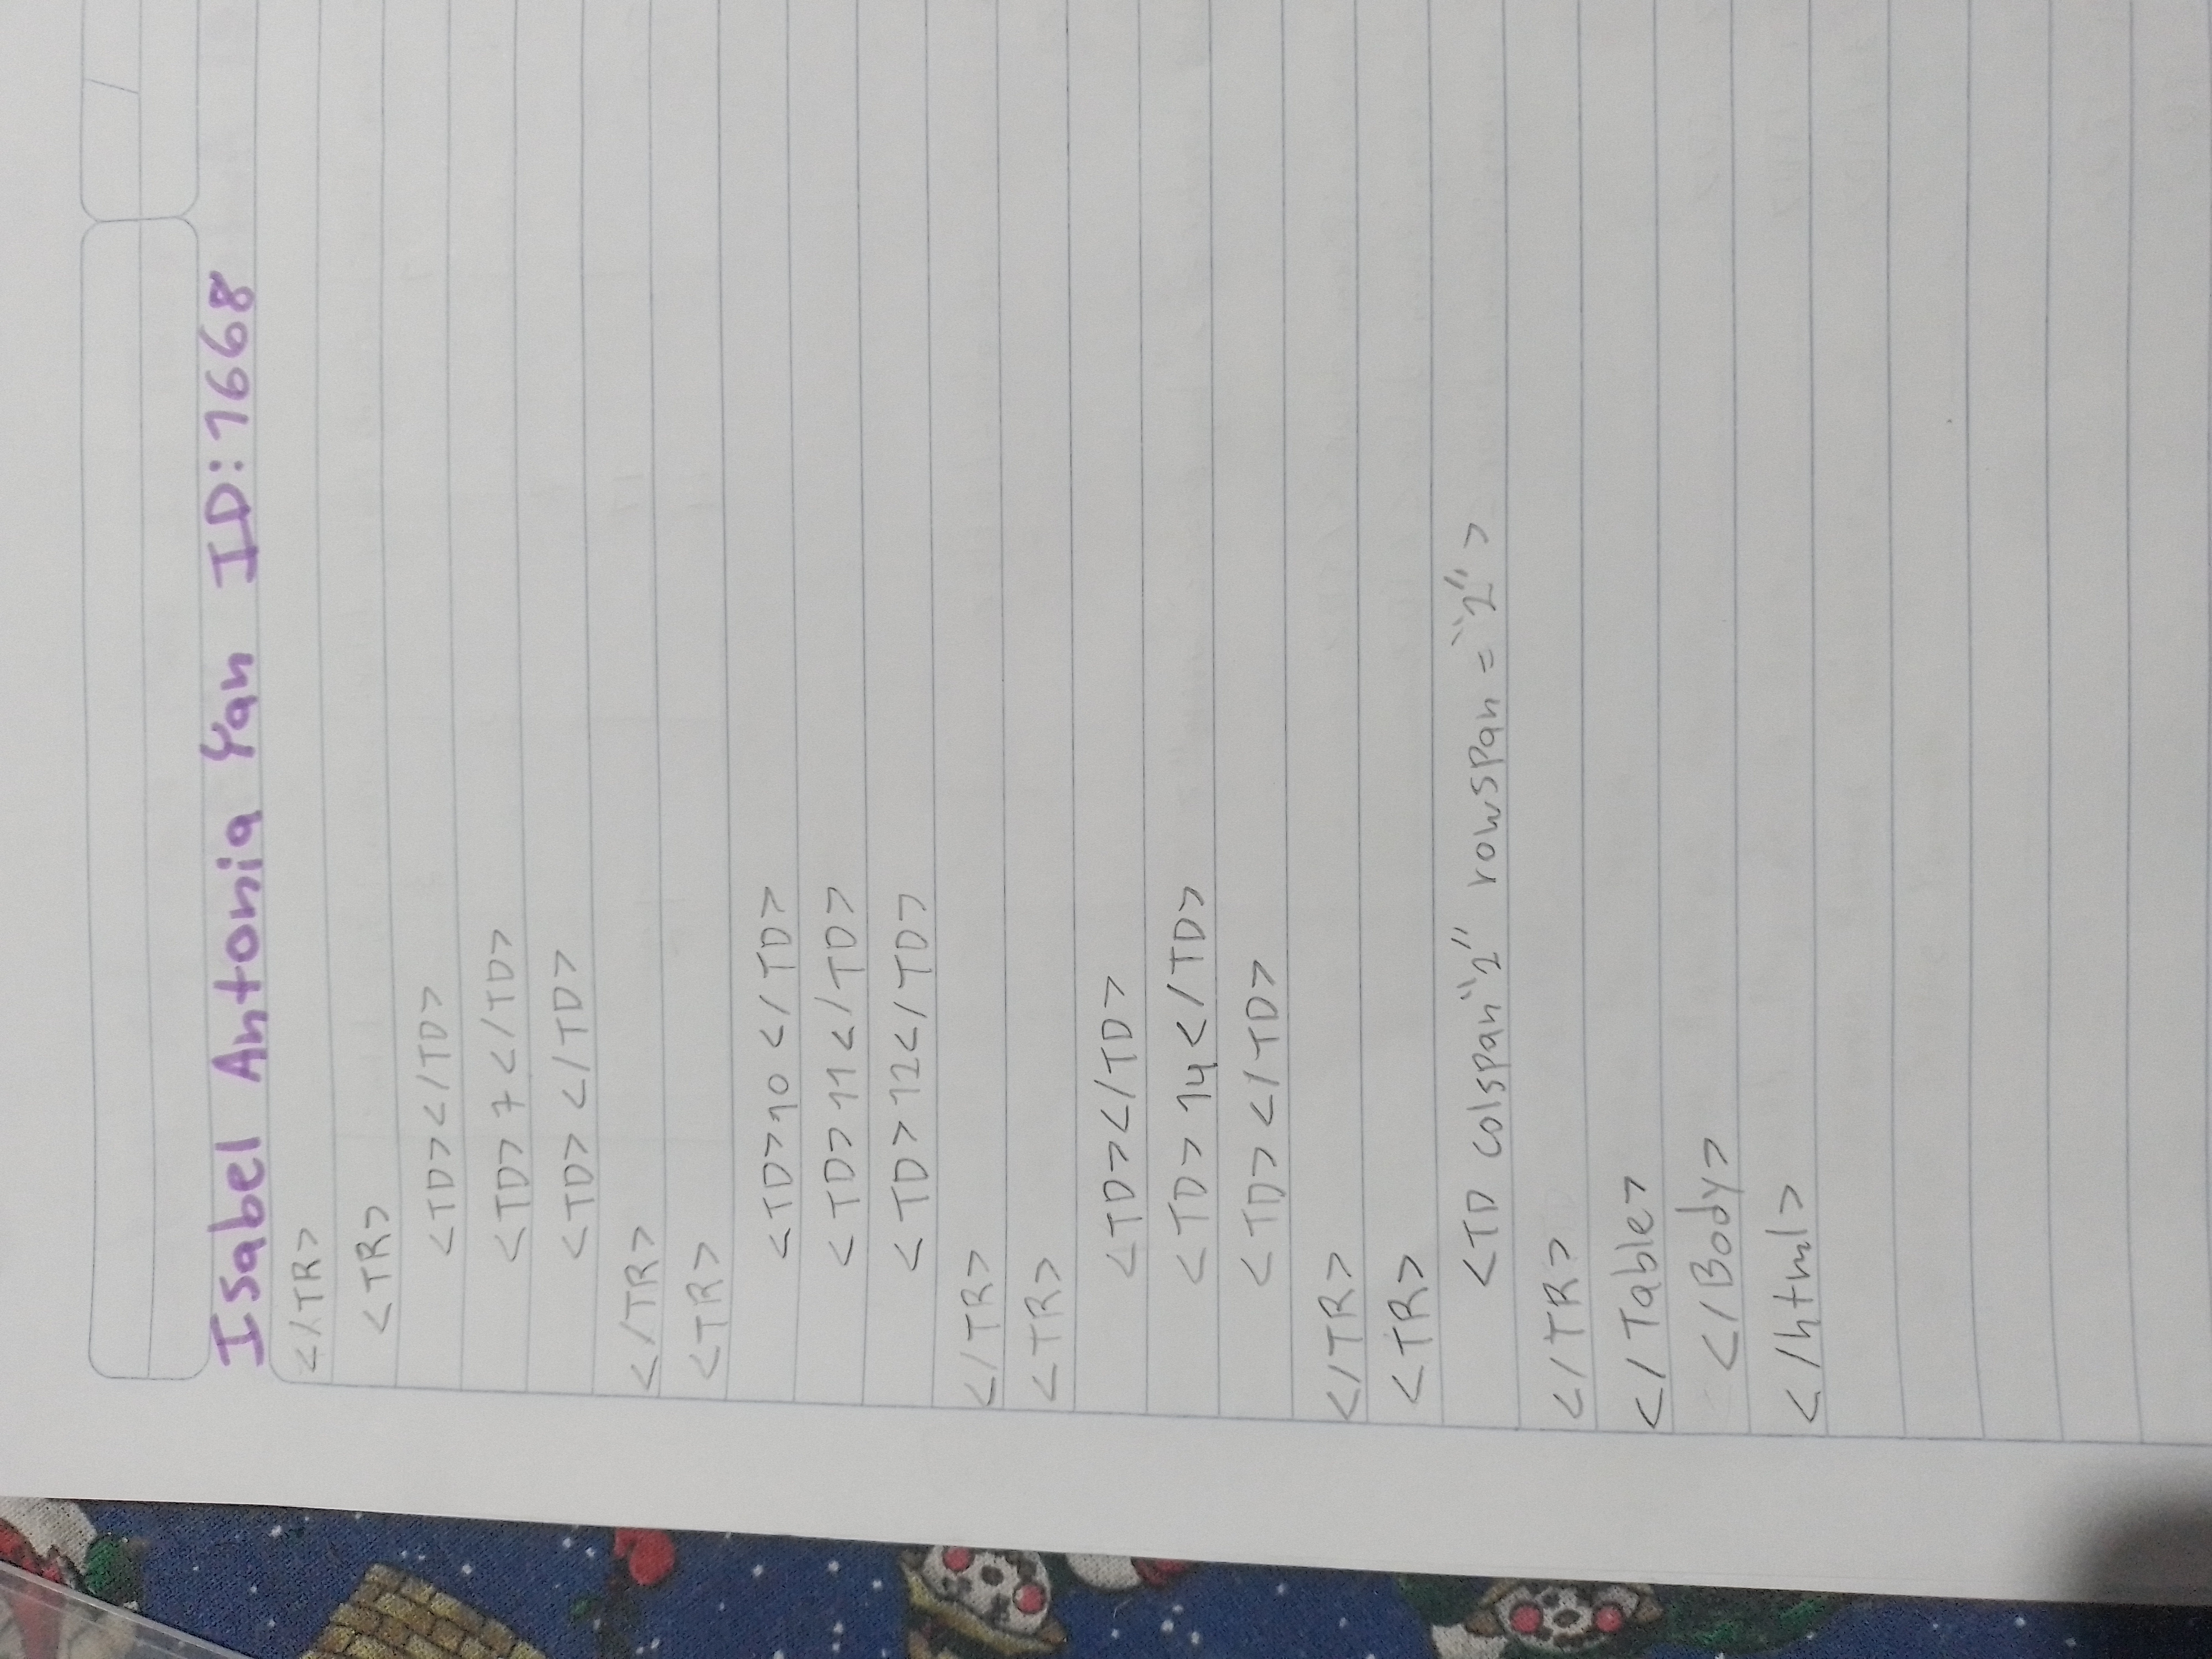 Isabel Antonia Yan ID:1668
</TR>
<TR>
<TD></TD>
<TD>7</TD>
<TD></TD>
</TR>
<TR>
<TD>10</TD>
<TD>11</TD>
<TD>12</TD>
</TR>
<TR>
<TD></TD>
<TD>14</TD>
<TD></TD>
</TR>
<TR>
<TD colspan"2" rowspan="2">
</TR>
</Table>
</Body>
</html>